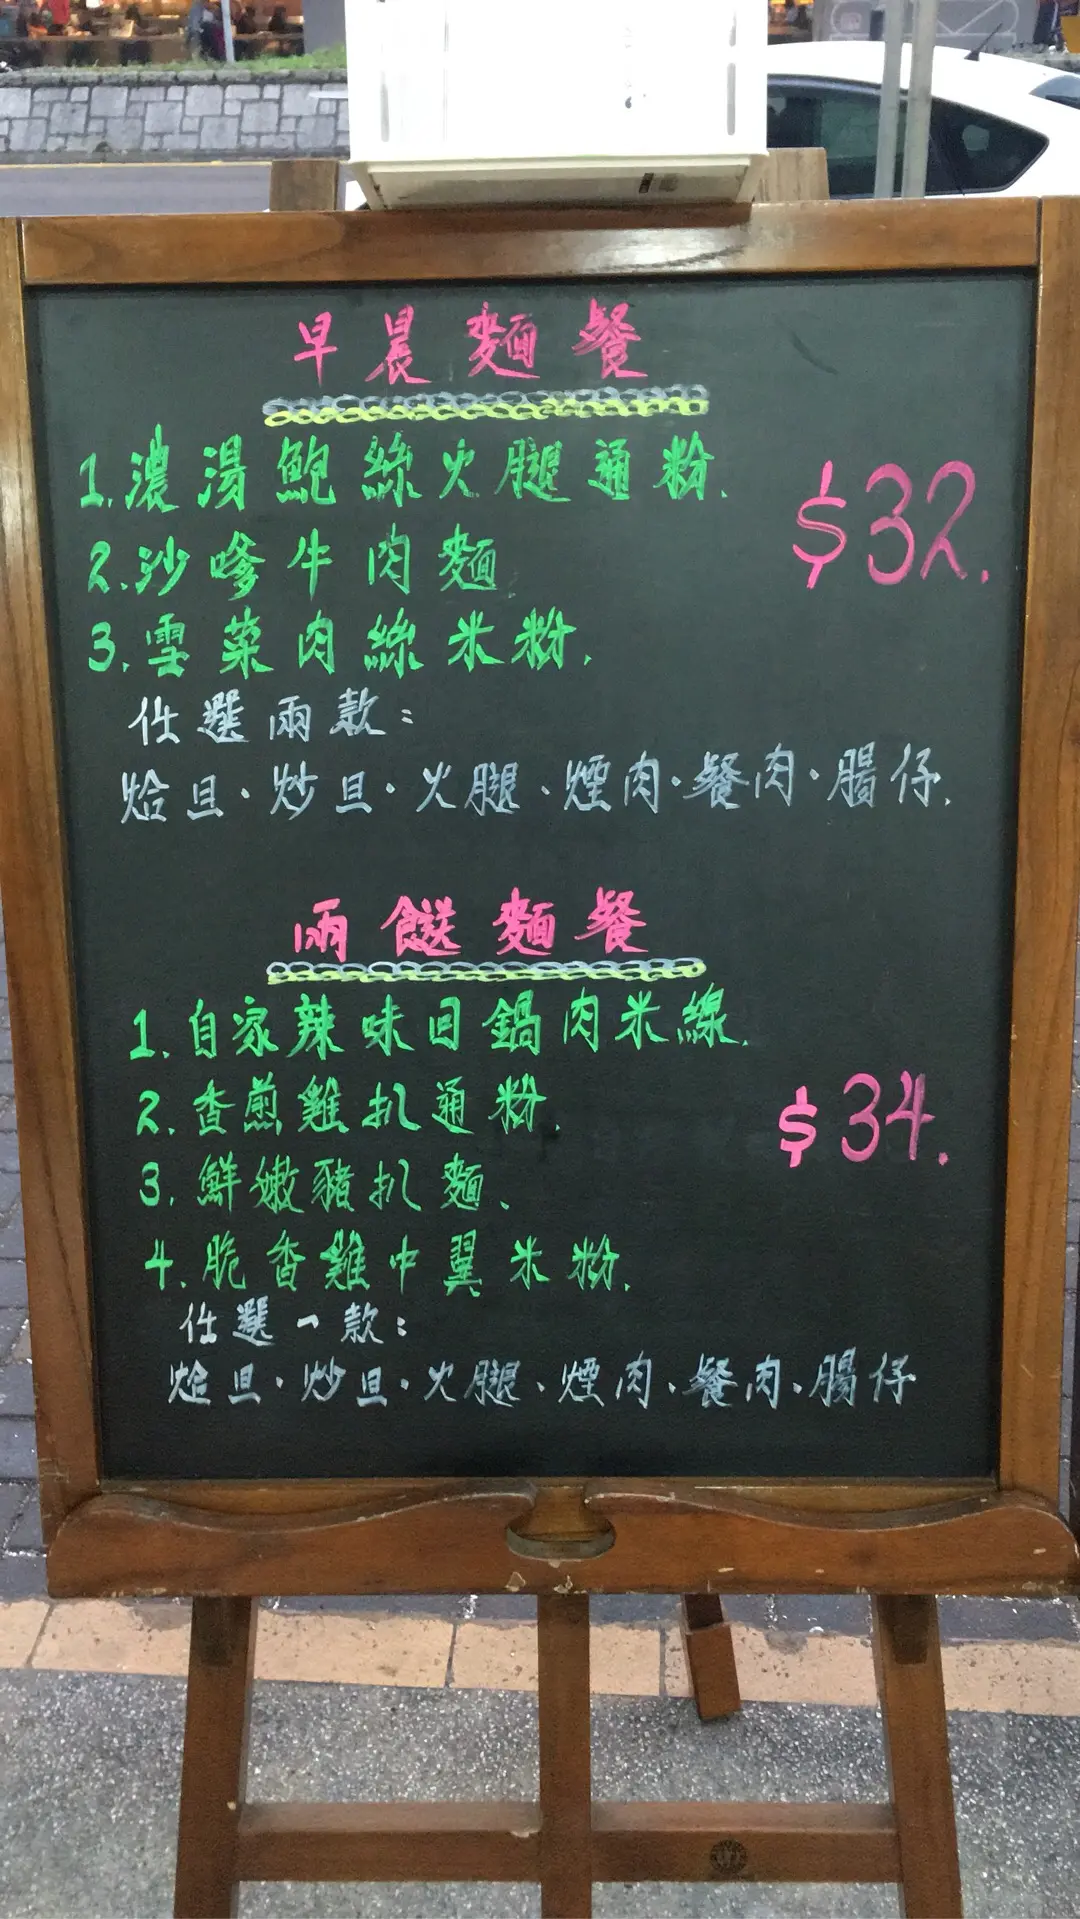 早晨麵餐
1.濃湯鮑絲火腿通粉.
$32.
2.沙嗲牛肉麵
3.雪菜肉絲米粉.
任選兩款：
烚旦·炒旦·火腿、煙肉·餐肉·腸仔.
兩餸麵餐
1.自家辣味回鍋肉米線.
2.香煎雞扒通粉.
$34.
3.鮮嫩豬扒麵、
4.脆香雞中翼米粉.
任選一款：
烚旦·炒旦·火腿、煙肉、餐肉、腸仔